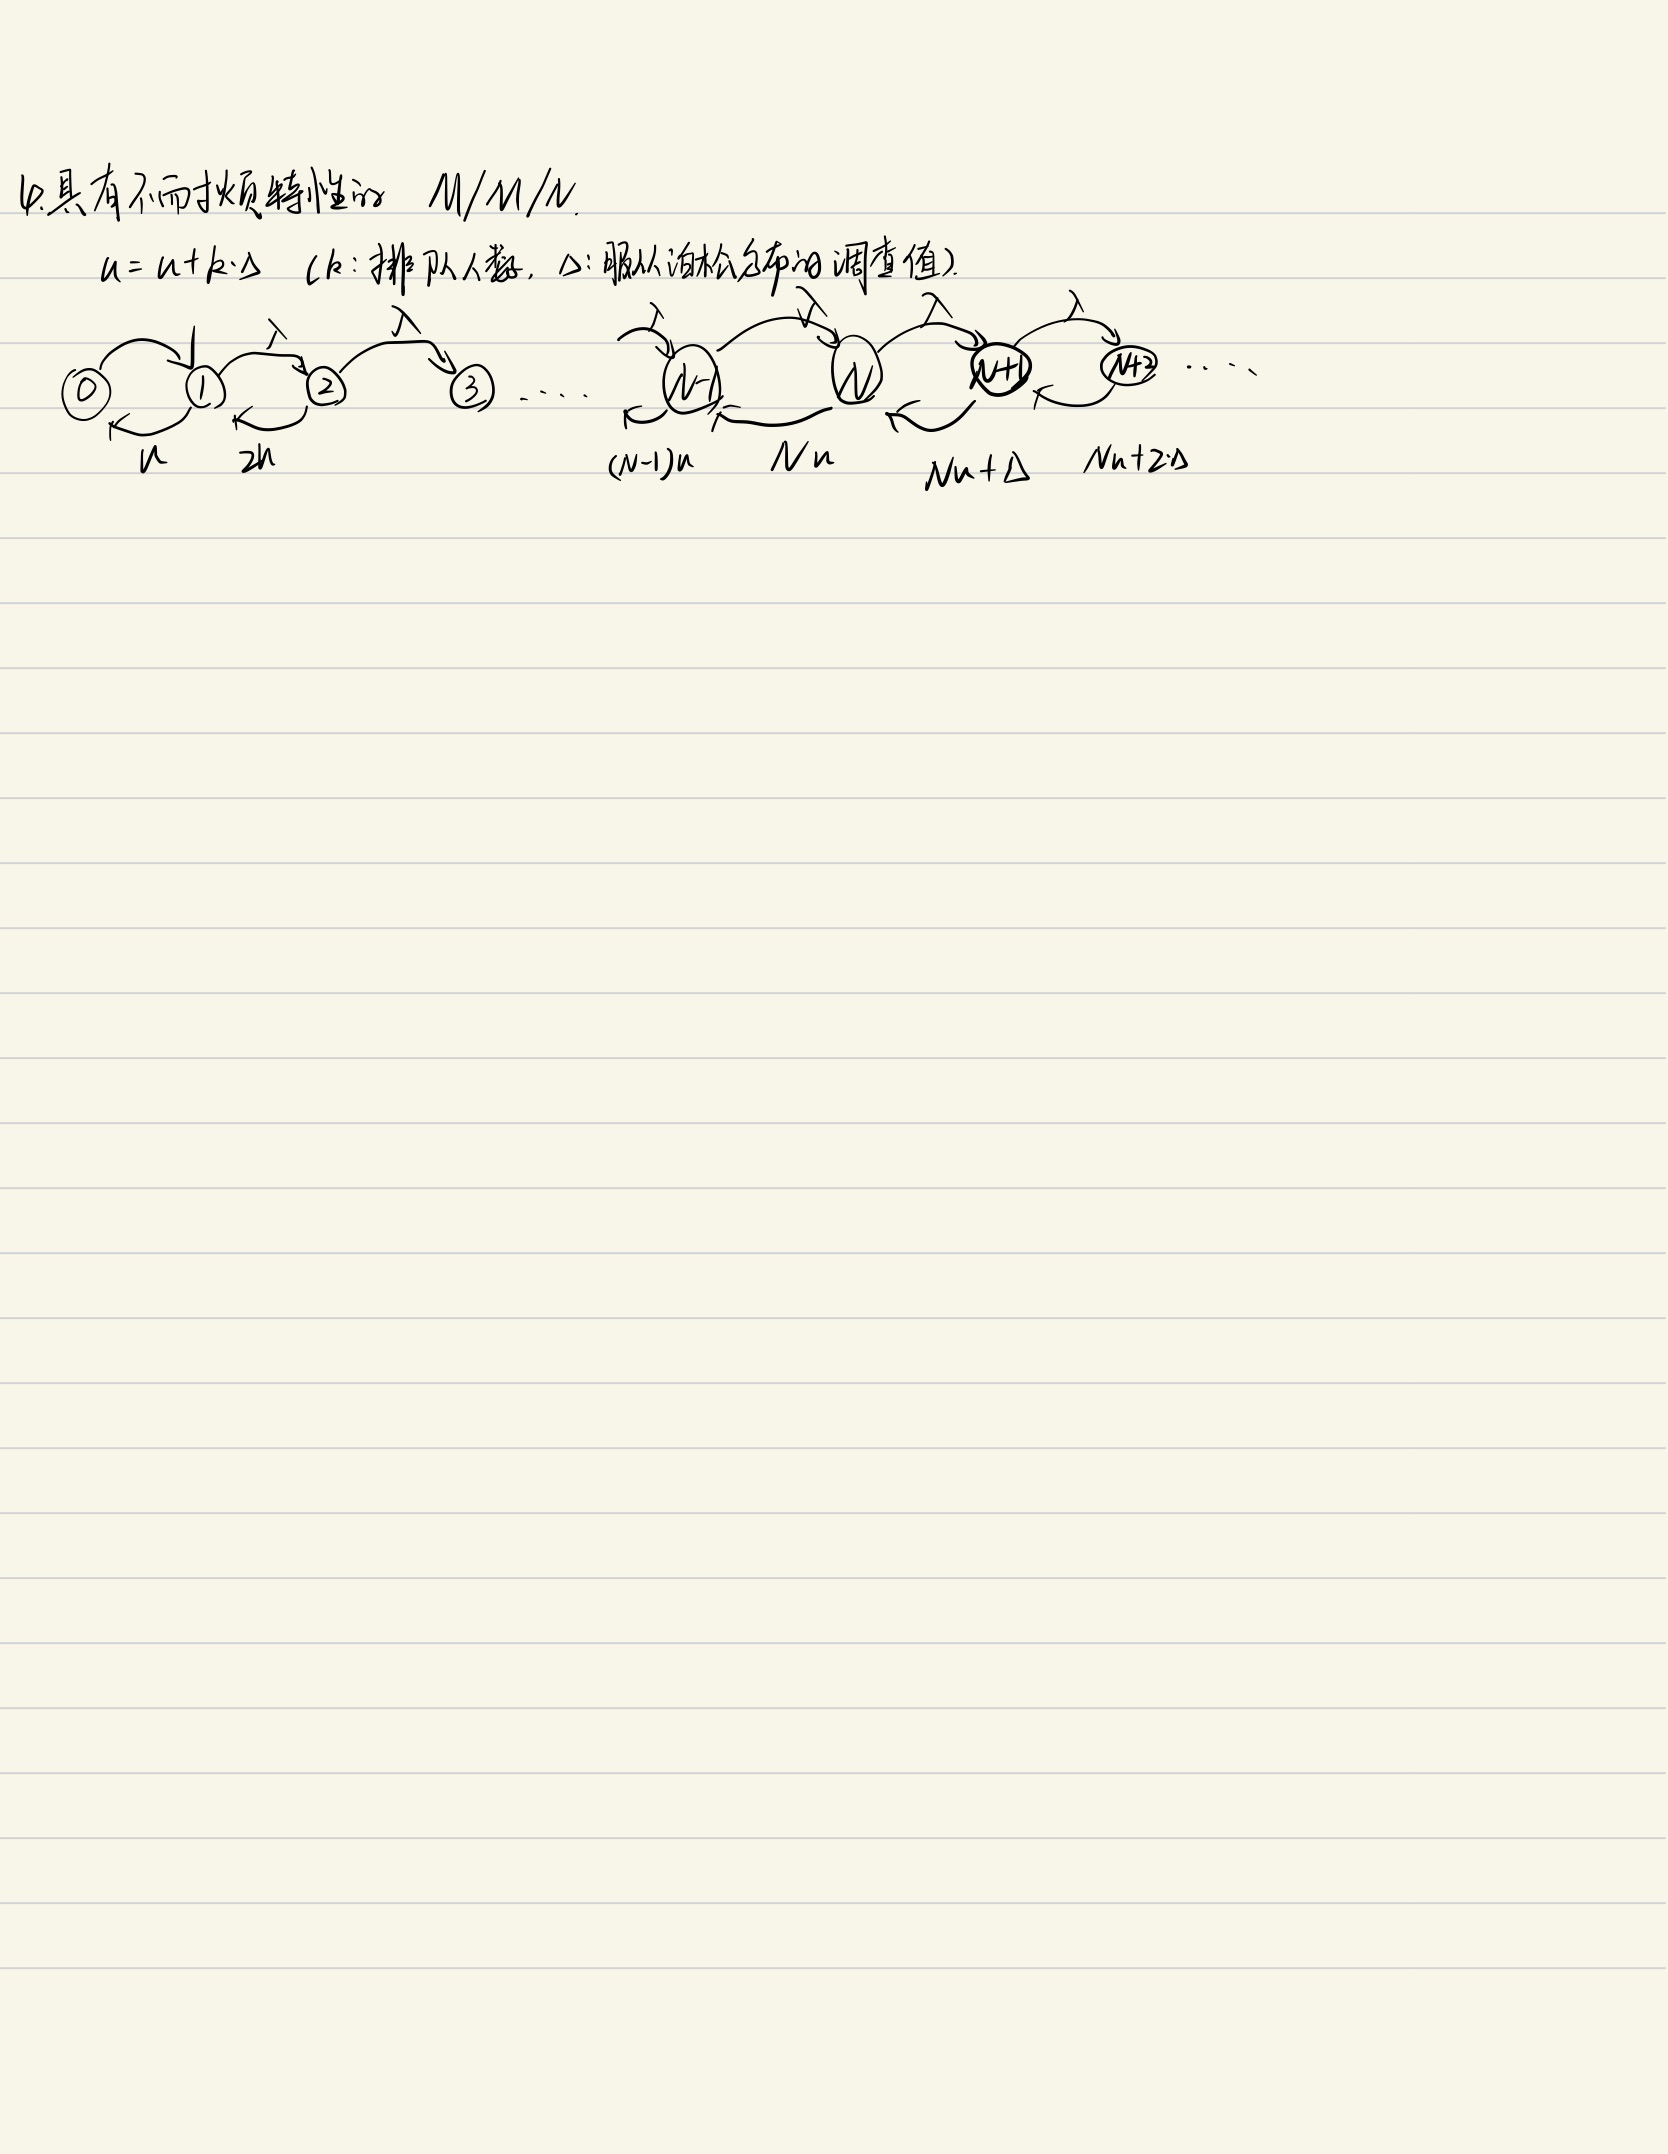 4.具有不耐烦特性的 M/M/N.
u = u + k·Δ (k: 排队人数, Δ: 服从泊松分布的调查值).
λ λ λ λ λ λ
0 1 2 3 ..... N-1 N N+1 N+2 .....
u 2u (N-1)u Nu Nu+Δ Nu+2·Δ